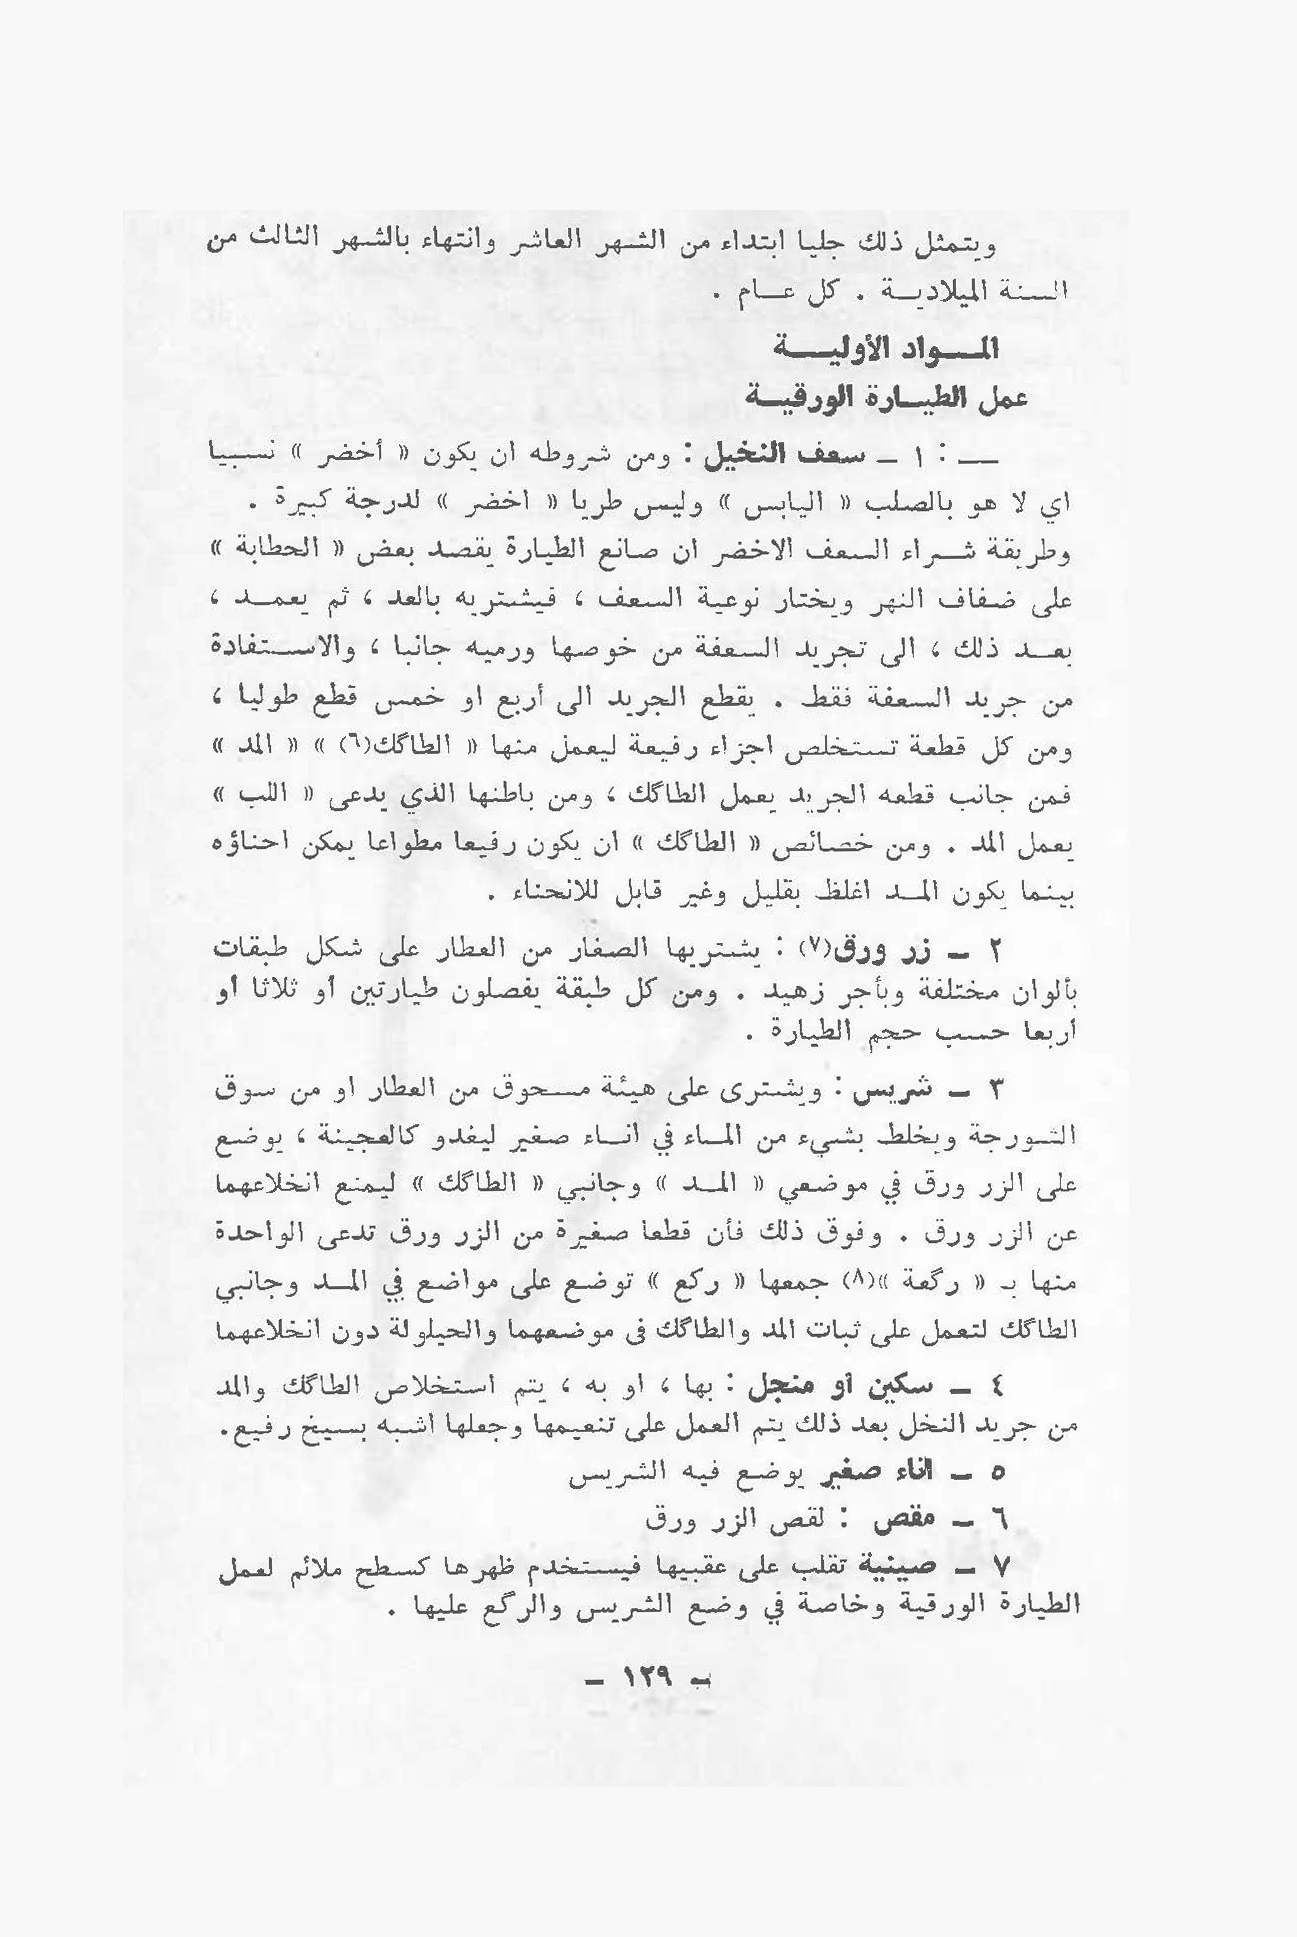 ويتمثل ذلك جليا ابتداء من الشهر العاشر وانتهاء بالشهر الثالث من
السنة الميلادية . كل عام .
المواد الأولية
عمل الطيارة الورقية
ـــ : ١ ـ سعف النخيل : ومن شروطه ان يكون « أخضر » نسبيا
اي لا هو بالصلب « اليابس » وليس طريا « اخضر » لدرجة كبيرة .
وطريقة شراء السعف الاخضر ان صانع الطيارة يقصد بعض « الحطابة »
على ضفاف النهر ويختار نوعية السعف ، فيشتريه بالعد ، ثم يعمد ،
بعد ذلك ، الى تجريد السعفة من خوصها ورميه جانبا ، والاستفادة
من جريد السعفة فقط . يقطع الجريد الى أربع او خمس قطع طوليا ،
ومن كل قطعة تستخلص اجزاء رفيعة ليعمل منها « الطاگك(٦) » « المد »
فمن جانب قطعه الجريد يعمل الطاگك ، ومن باطنها الذي يدعى « اللب »
يعمل المد . ومن خصائص « الطاگك » ان يكون رفيعا مطواعا يمكن احناؤه
بينما يكون المد اغلظ بقليل وغير قابل للانحناء .
٢ ـ زر ورق(٧) : يشتريها الصغار من العطار على شكل طبقات
بألوان مختلفة وبأجر زهيد . ومن كل طبقة يفصلون طيارتين أو ثلاثا أو
أربعا حسب حجم الطيارة .
٣ ـ شريس : ويشترى على هيئة مسحوق من العطار او من سوق
الشورجة ويخلط بشيء من الماء في اناء صغير ليغدو كالعجينة ، يوضع
على الزر ورق في موضعي « المد » وجانبي « الطاگك » ليمنع انخلاعهما
عن الزر ورق . وفوق ذلك فأن قطعا صغيرة من الزر ورق تدعى الواحدة
منها بـ « رگعة »(٨) جمعها « ركع » توضع على مواضع في المد وجانبي
الطاگك لتعمل على ثبات المد والطاگك فى موضعهما والحيلولة دون انخلاعهما
٤ ـ سكين او منجل : بها ، او به ، يتم استخلاص الطاگك والمد
من جريد النخل بعد ذلك يتم العمل على تنعيمها وجعلها اشبه بسيخ رفيع.
٥ ـ اناء صغير يوضع فيه الشريس
٦ ـ مقص : لقص الزر ورق
٧ ـ صينية تقلب على عقبيها فيستخدم ظهرها كسطح ملائم لعمل
الطيارة الورقية وخاصة في وضع الشريس والرگع عليها .
ـ ١٢٩ ـ